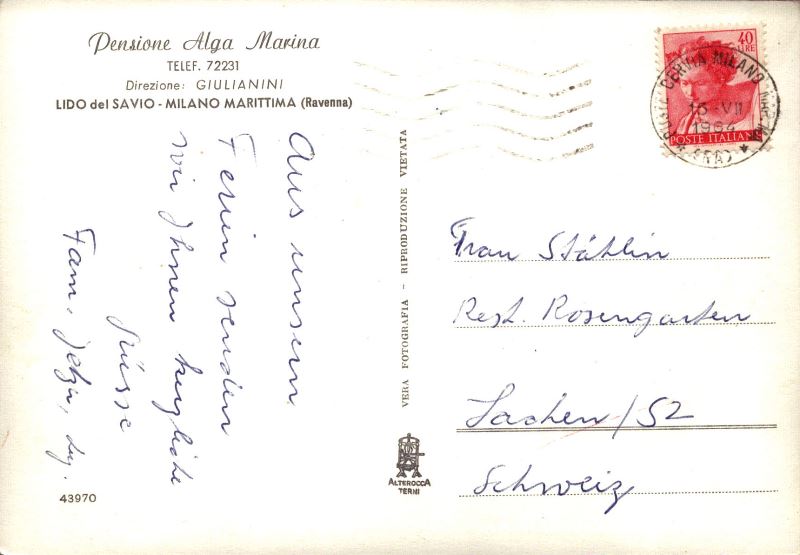 Pensione Alga Marina
TELEF. 72231
Direzione: GIULIANINI
LIDO del SAVIO - MILANO MARITTIMA (Ravenna)
Aus unsern
Ferien senden
wir Ihnen herzliche
Grüsse
Fam.
43970
VERA FOTOGRAFIA - RIPRODUZIONE VIETATA
ALTEROCCA
TERNI
40
LIRE
POSTE ITALIANE
CERVIA MILANO MAR.MA
15 - VII
1964
(RA)
Frau Stählin
Rest. Rosengarten
Lachen / SZ
Schweiz